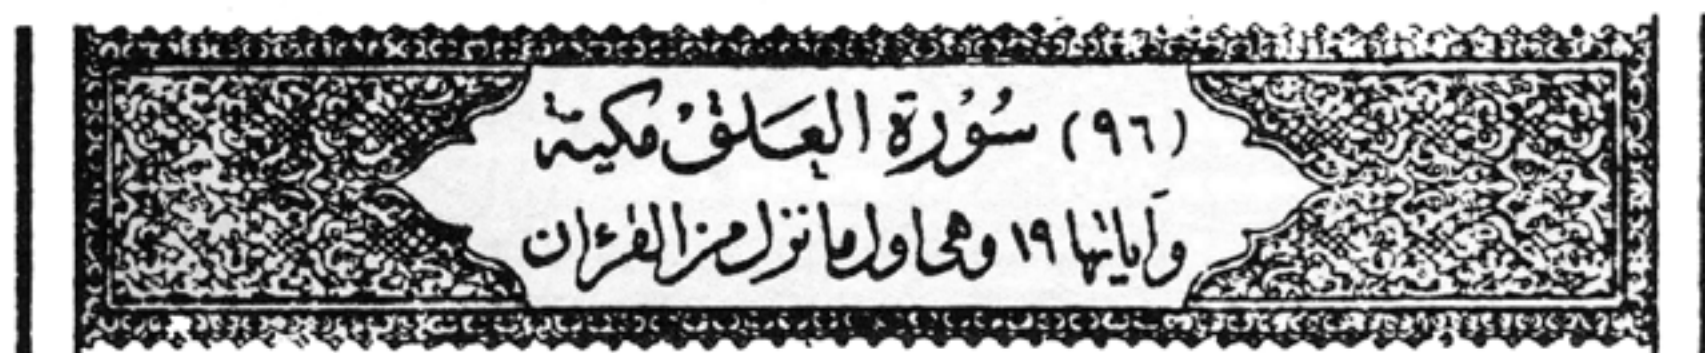 (٩٦) سُوْرَة العَلَق مكيّة
وَآياتها ١٩ وهي اول ما نزل من القرءان